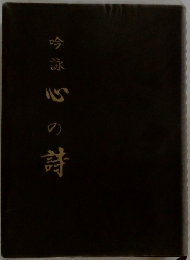 吟詠心の詩